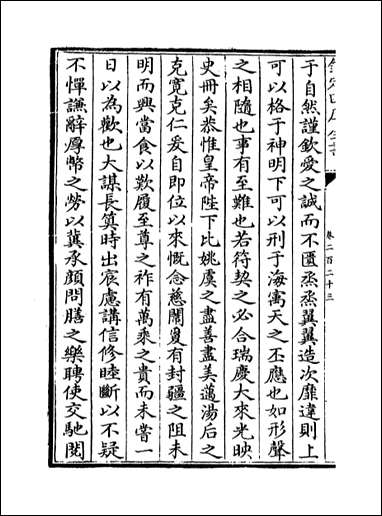 于自然謹欽愛之誠而不匱烝烝翼翼造次靡違則上
可以格于神明下可以刑于海㝢天之丕應也如形聲
之相隨也事有至難也若符契之必合瑞慶大來光映
史冊矣恭惟皇帝陛下比姚虞之盡善盡美邁湯后之
克寛克仁爰自即位以來慨念慈闈夐有封疆之阻未
明而興當食以歎履至尊之祚有萬乘之貴而未嘗一
日以為歡也大謀長筭時出宸慮講信修睦斷以不疑
不憚謙辭厚幣之勞以冀承顔問膳之樂聘使交馳閱
欽定四庫全書
卷二百二十三